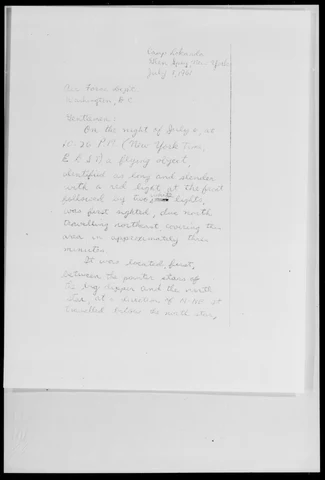 Camp
Glen Spey New York
July 7, 1961
Air Force Dept.
Washington, D.C.
Gentlemen:
On the night of July 6, at
10:26 P.M. (New York Time,
E.D.S.T) a flying object,
identified as long and slender
with a red light at the front
followed by two lights,
was first sighted, due north
travelling northeast covering this
area in approximately three
minutes.
It was located, first,
between the pointer stars of
the big dipper and the north
Star, at a direction of It
travelled below the north star,